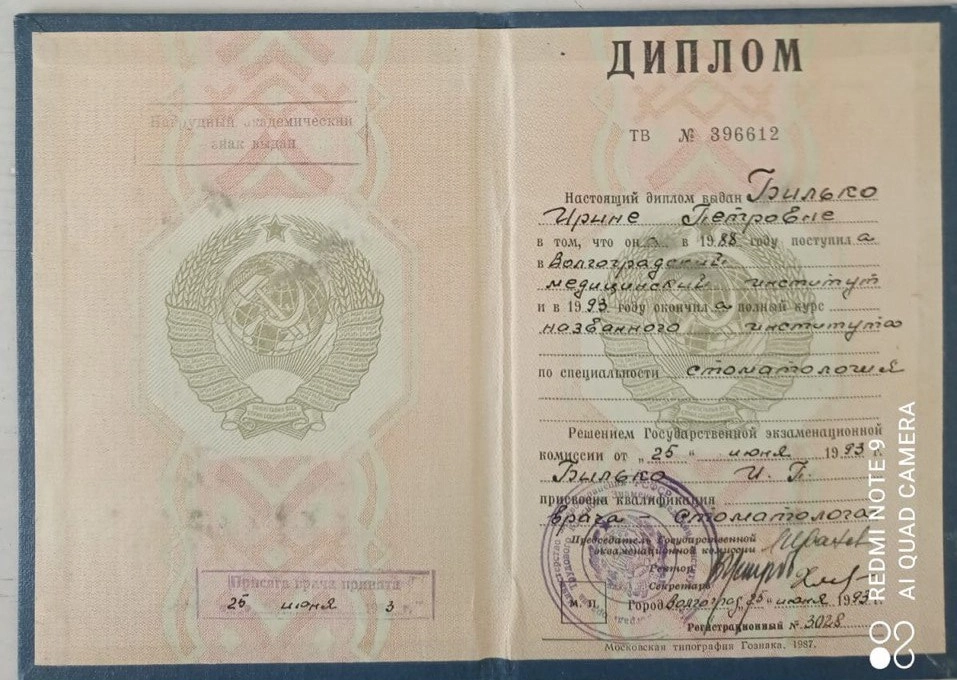 Нагрудный академический
знак выдан
Присяга врача принята
25 июня 3
ДИПЛОМ
ТВ № 396612
Настоящий диплом выдан Билько
Ирине Петровне
в том, что она в 1988 году поступила
в Волгоградский
медицинский институт
и в 1993 году окончила полный курс
названного института
по специальности стоматология
Решением Государственной экзаменационной
комиссии от „25“ июня 1993 г.
Билько И. П.
присвоена квалификация
врача стоматолога
Председатель Государственной
экзаменационной комиссии
Ректор
Секретарь
М. П. Город Волгоград „25“ июня 1993 г.
Регистрационный № 3028
Московская типография Гознака. 1987.
REDMI NOTE 9
AI QUAD CAMERA